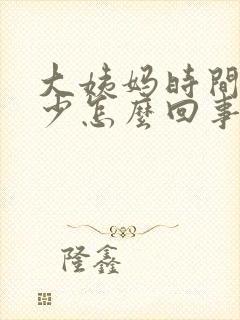 大姨妈時間
少怎麼回事
隆鑫